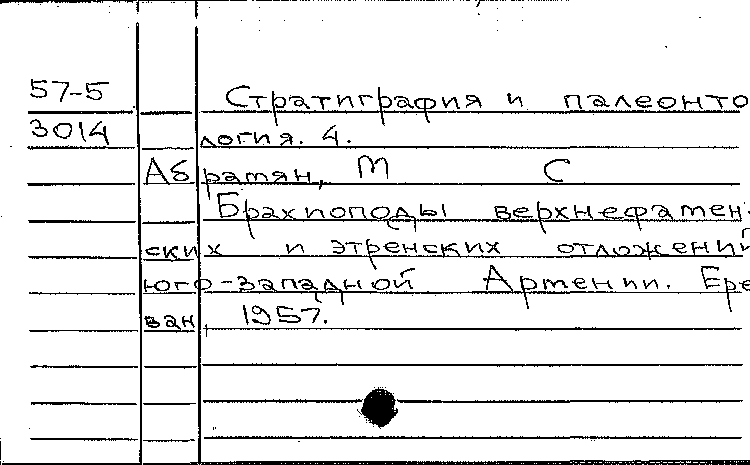 57-5 Стратиграфия и палеонто
3014 логия. 4.
Абрамян, М С
Брахиоподы верхнефамен-
ских и этренских отложений
юго-западной Армении. Ере
ван, 1957.